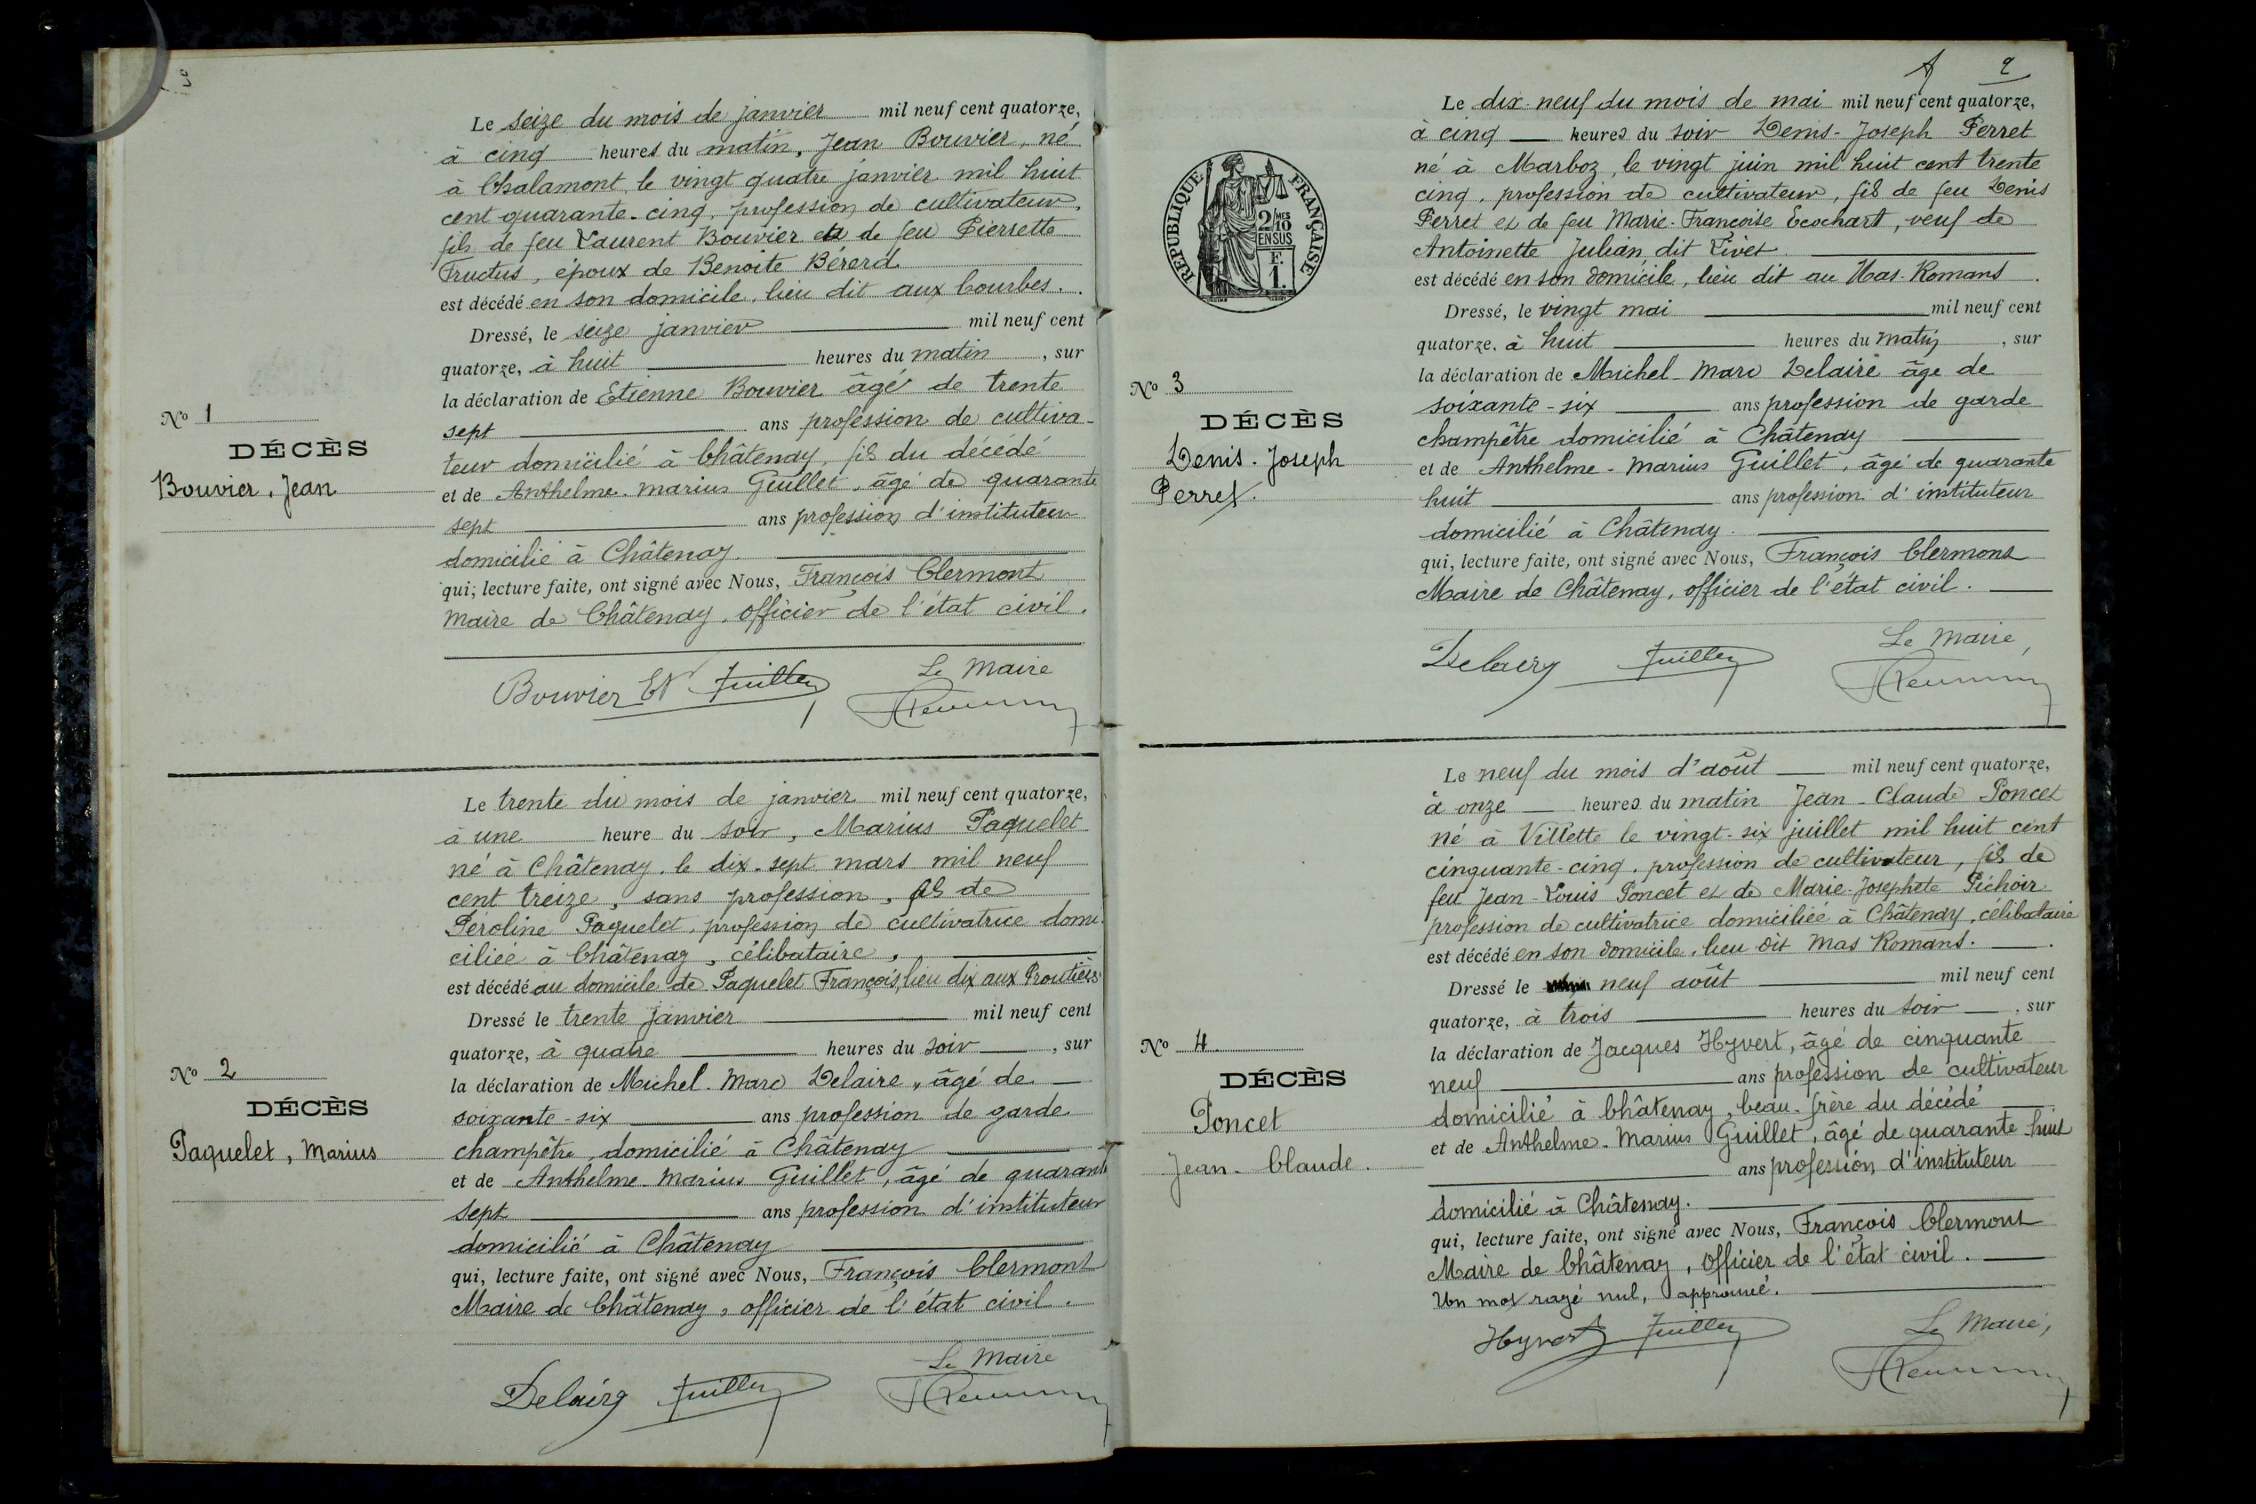 Le seize du mois de janvier mil neuf cent quatorze,
à cinq heures du matin, Jean Bouvier, né
à Chalamont, le vingt quatre janvier mil huit
cent quarante-cinq, profession de cultivateur,
fils de feu Laurent Bouvier et de feu Pierrette
Fructus, époux de Benoite Bérerd
est décédé en son domicile, lieu dit aux Courbes.
Dressé, le seize janvier mil neuf cent
quatorze, à huit heures du matin, sur
la déclaration de Etienne Bouvier âgé de trente
sept ans profession de cultiva-
teur domicilié à Châtenay, fils du décédé
et de Anthelme-Marius Guillet, âgé de quarante
sept ans profession d'instituteur
domicilié à Châtenay.
qui; lecture faite, ont signé avec Nous, François Clermont
Maire de Châtenay, officier de l'état civil.
Bouvier Et Guillet Le Maire
No 1
DÉCÈS
Bouvier, Jean
Le trente du mois de janvier mil neuf cent quatorze,
à une heure du soir, Marius Paquelet
né à Châtenay, le dix-sept mars mil neuf
cent treize, sans profession, fils de
Péroline Paquelet, profession de cultivatrice domi-
ciliée à Châtenay, célibataire,
est décédé au domicile de Paquelet François, lieu dix aux Proutières
Dressé le trente janvier mil neuf cent
quatorze, à quatre heures du soir, sur
la déclaration de Michel-Marc Delaire, âgé de
soixante-six ans profession de garde
champêtre, domicilié à Châtenay
et de Anthelme-Marius Guillet, âgé de quarante
sept ans profession d'instituteur
domicilié à Châtenay
qui, lecture faite, ont signé avec Nous, François Clermont
Maire de Châtenay, officier de l'état civil.
Delaire Guillet Le Maire
No 2
DÉCÈS
Paquelet, Marius
2
RÉPUBLIQUE FRANÇAISE
2/MES
10
EN SUS
F.
1.
Le dix-neuf du mois de mai mil neuf cent quatorze,
à cinq heures du soir Denis-Joseph Perret
né à Marboz, le vingt juin mil huit cent trente
cinq, profession de cultivateur, fils de feu Denis
Perret et de feu Marie-Françoise Ecochard, veuf de
Antoinette Julian, dit Tivet
est décédé en son domicile, lieu dit au Mas Romans.
Dressé, le vingt mai mil neuf cent
quatorze, à huit heures du matin, sur
la déclaration de Michel-Marc Delaire âge de
soixante-six ans profession de garde
champêtre domicilié à Châtenay
et de Anthelme-Marius Guillet, âgé de quarante
huit ans profession d'instituteur
domicilié à Châtenay.
qui, lecture faite, ont signé avec Nous, François Clermont
Maire de Châtenay, officier de l'état civil.
Delaire Guillet Le Maire,
No 3
DÉCÈS
Denis-Joseph
Perret.
Le neuf du mois d'août mil neuf cent quatorze,
à onze heures du matin Jean-Claude Poncet
né à Villette le vingt-six juillet mil huit cent
cinquante-cinq, profession de cultivateur, fils de
feu Jean-Louis Poncet et de Marie-Josephete Pichoir
profession de cultivatrice domiciliée à Châtenay, célibataire
est décédé en son domicile, lieu dit Mas Romans.
Dressé le neuf août mil neuf cent
quatorze, à trois heures du soir, sur
la déclaration de Jacques Hyvert, âgé de cinquante
neuf ans profession de cultivateur
domicilié à Châtenay, beau-frère du décédé
et de Anthelme-Marius Guillet, âgé de quarante huit
ans profession d'instituteur
domicilié à Châtenay.
qui, lecture faite, ont signé avec Nous, François Clermont
Maire de Châtenay, Officier de l'état civil.
Un mot rayé nul, approuvé.
Hyvert Guillet Le Maire,
No 4
DÉCÈS
Poncet
Jean-Claude.